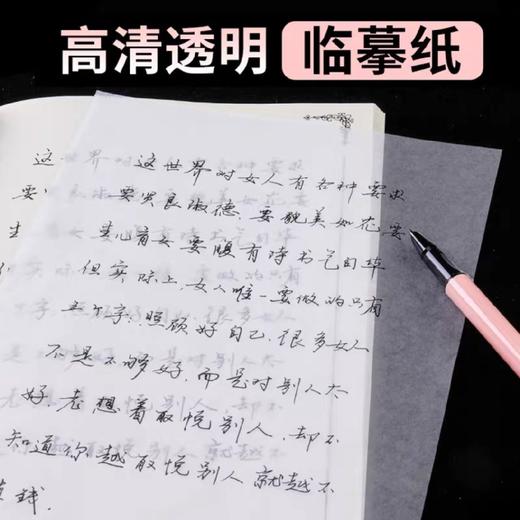 高清透明 临摹纸
这世界对女人有各种要求
要贤良淑德,要貌美如花,要
生儿育女,要腹有诗书气自华
但实际上,女人唯一要做的只有
五个字:照顾好自己,很多女人
不是不够好,而是对别人太
好,老想着取悦别人,却不
知道你越取悦别人就越不
值钱.